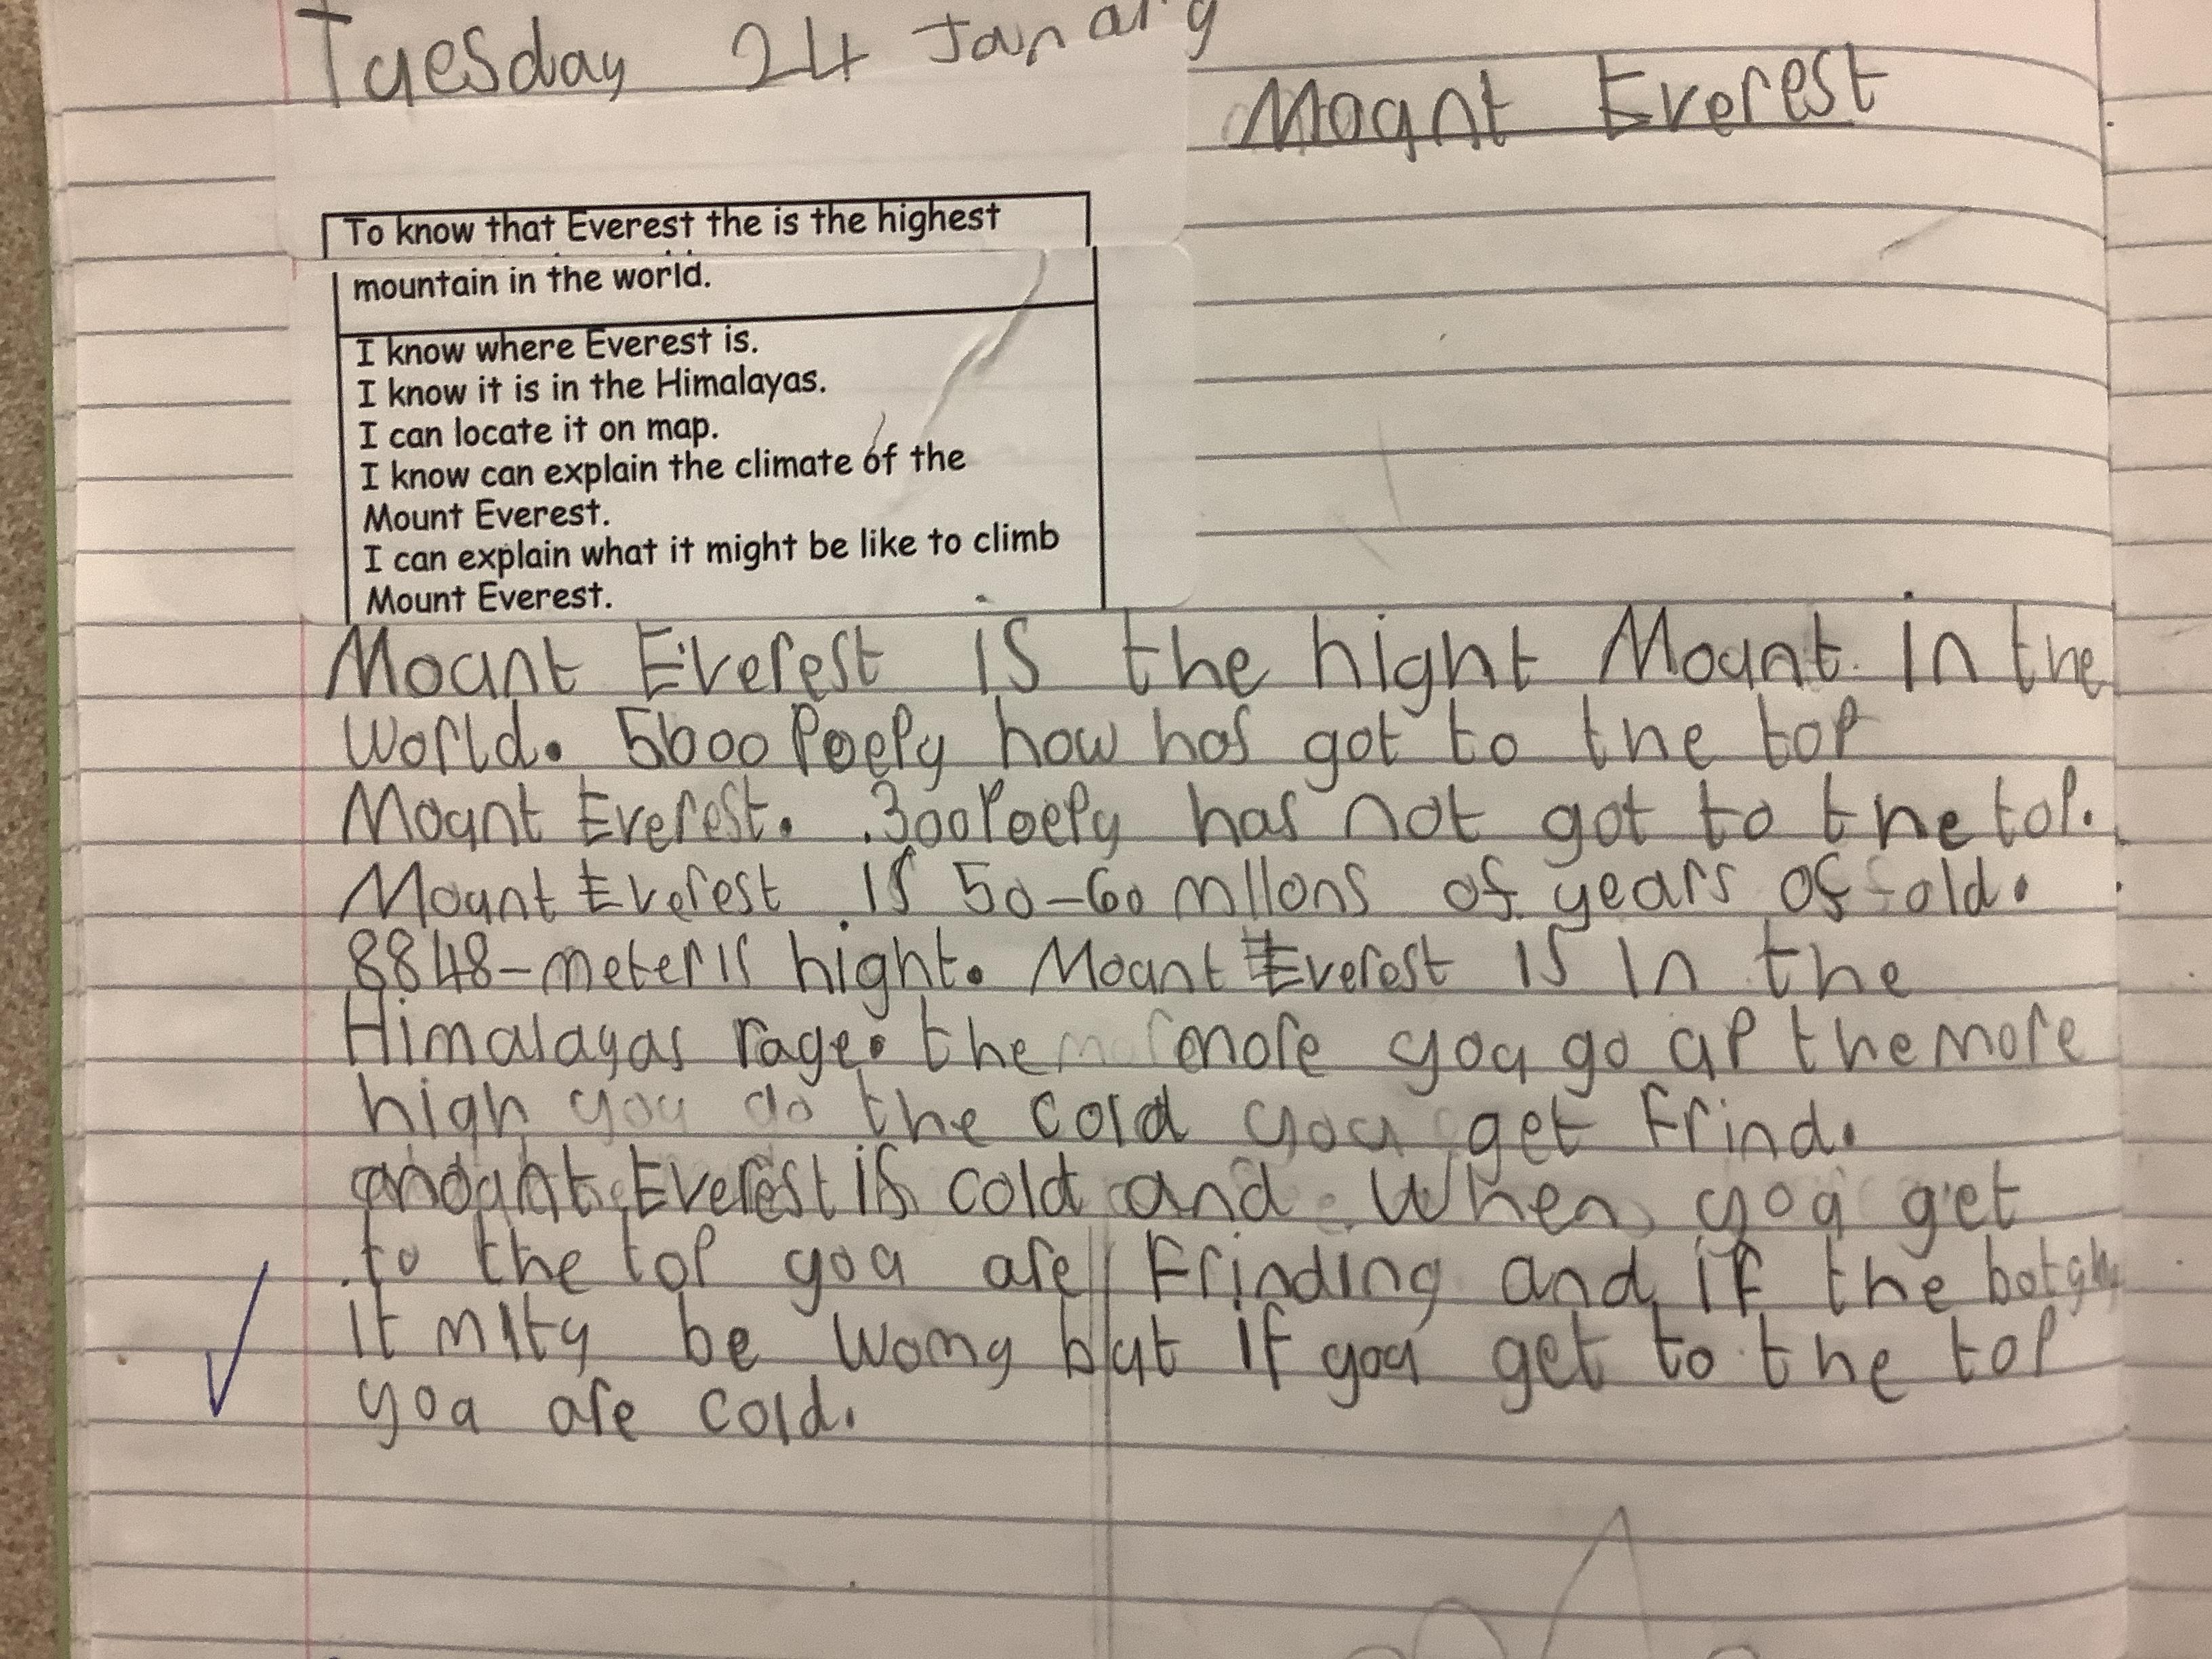 Tuesday 24 January
Mount Everest
To know that Everest the is the highest
mountain in the world.
I know where Everest is.
I know it is in the Himalayas.
I can locate it on map.
I know can explain the climate of the
Mount Everest.
I can explain what it might be like to climb
Mount Everest.
Mount Everest is the hight Mount in the
world. 5600 Poeply how has got to the top
Mount Everest. 300 Poeply has not got to the top.
Mount Everest is 50-60 mllons of years of old.
8848-meteris hight. Mount Everest is in the
Himalayas rage. the more you go up the more
high you do the cold you get Frind.
mount Everest is cold and When you get
to the top you are Frinding and if the
it mity be womg but if you get to the top
you are cold.